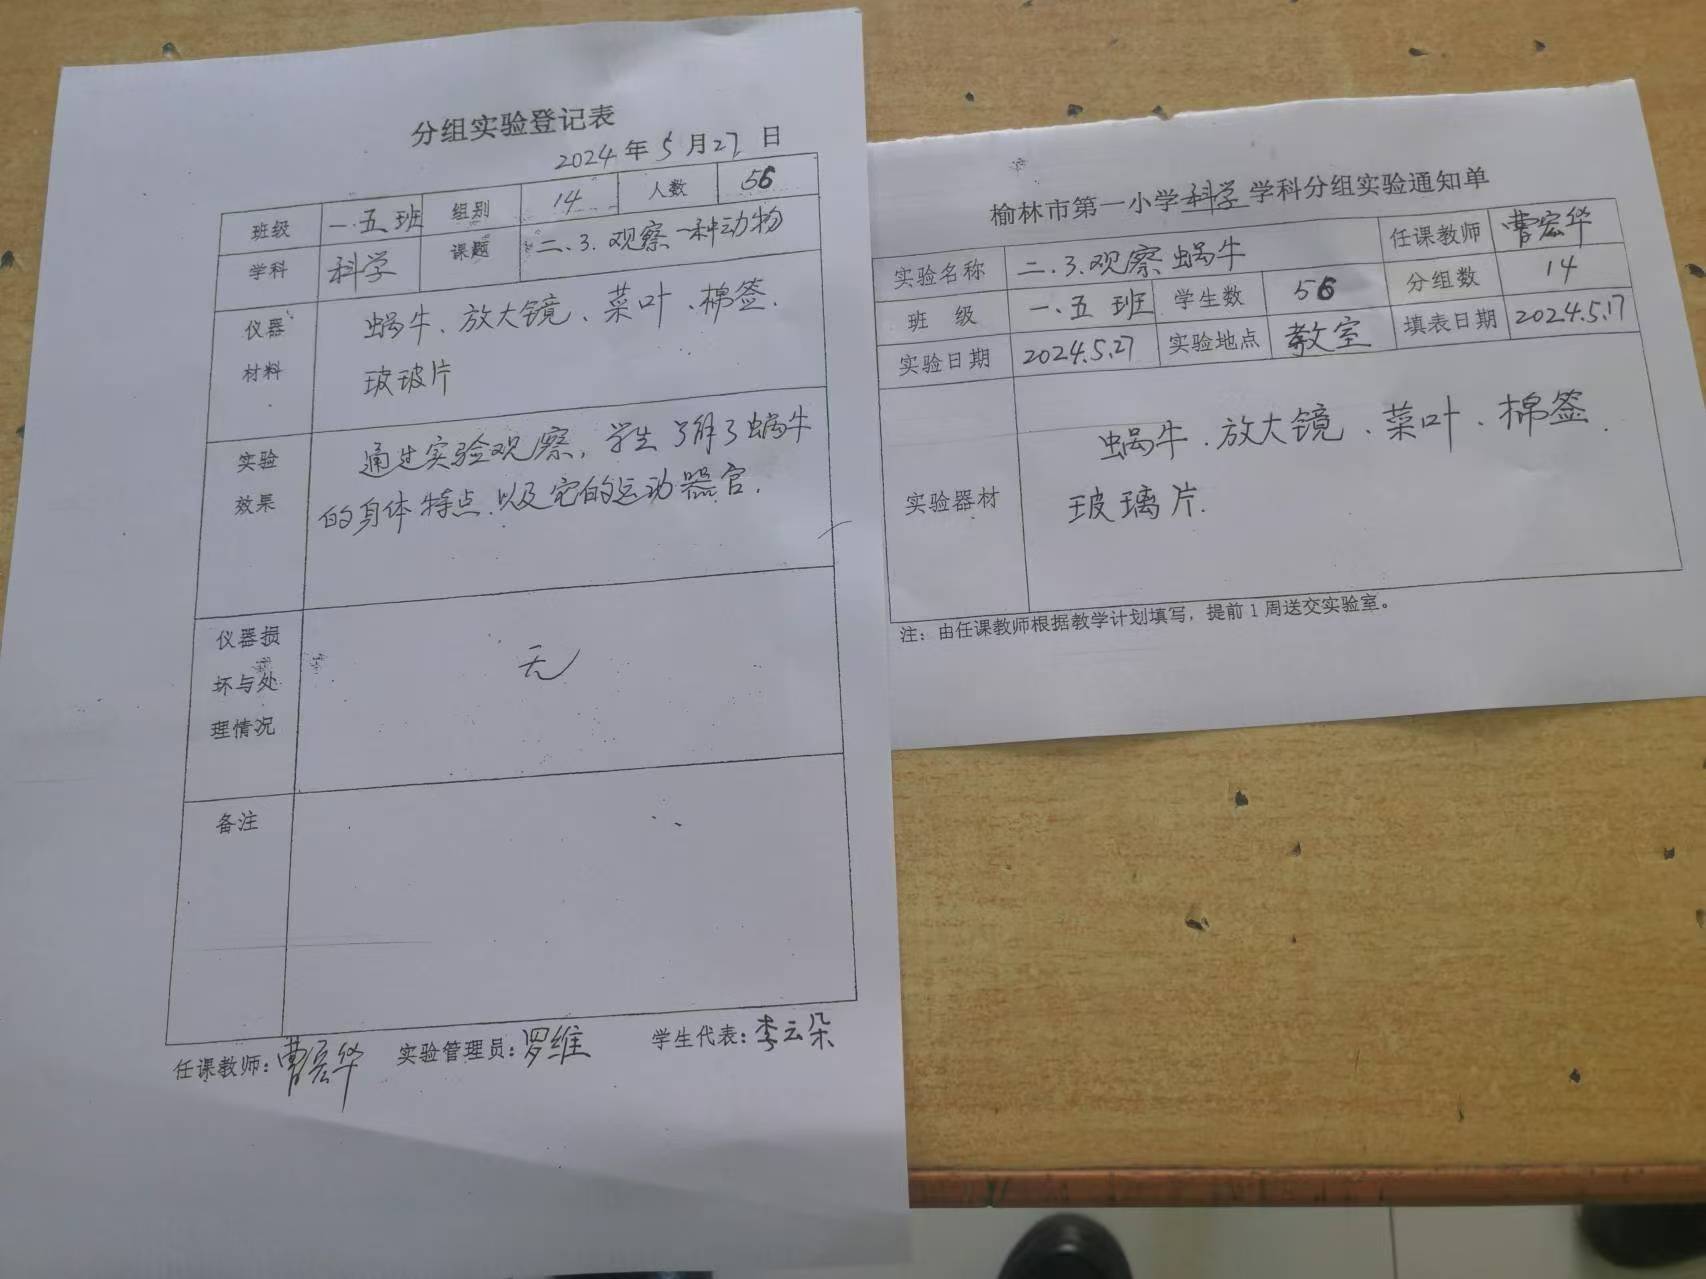 分组实验登记表
2024年5月27日
班级 一.五班 组别 14 人数 56
学科 科学 课题 二、3.观察一种动物
仪器材料 蜗牛、放大镜、菜叶、棉签.
玻玻片
实验效果 通过实验观察,学生了解了蜗牛
的身体特点.以及它的运动器官.
仪器损坏与处理情况 无
备注
任课教师:曹宏华 实验管理员:罗维 学生代表:李云朵
榆林市第一小学科学学科分组实验通知单
实验名称 二.3.观察蜗牛 任课教师 曹宏华
班 级 一.五班 学生数 56 分组数 14
实验日期 2024.5.27 实验地点 教室 填表日期 2024.5.17
实验器材 蜗牛.放大镜、菜叶、棉签.
玻璃片.
注:由任课教师根据教学计划填写,提前1周送交实验室。